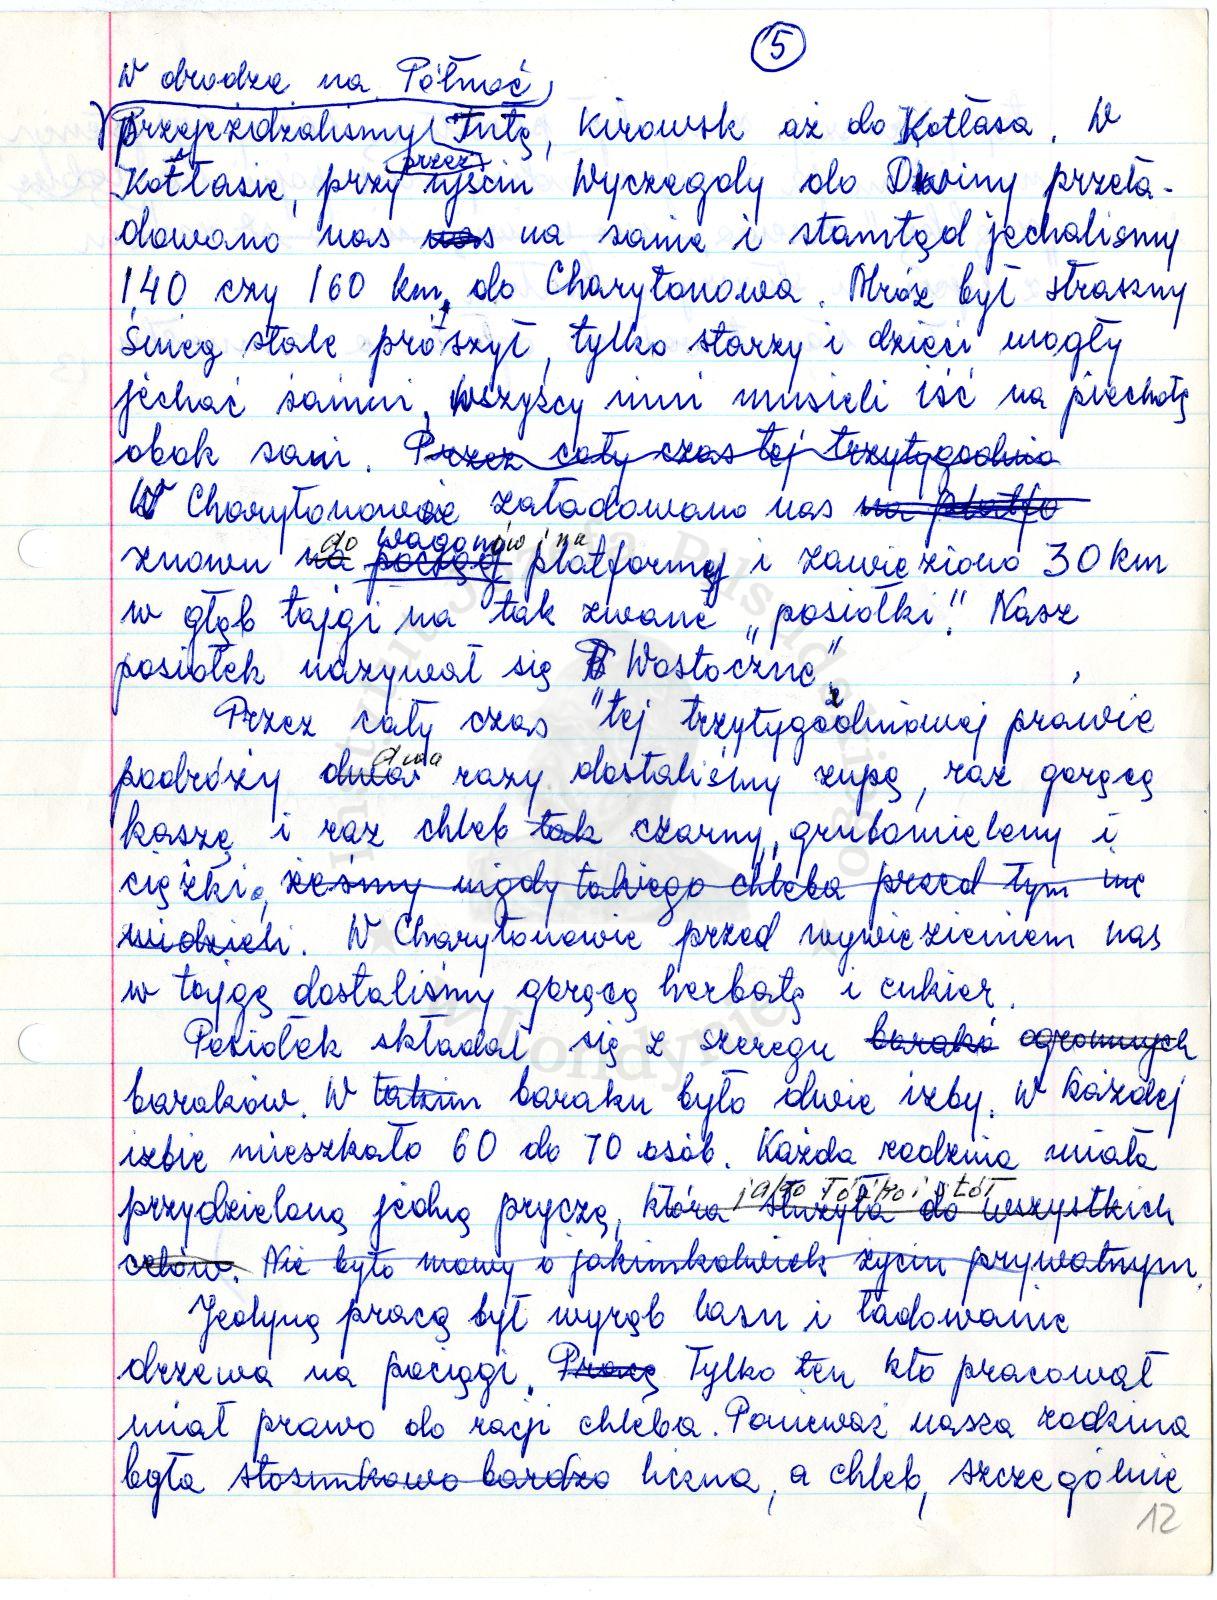 5
W drodze na Północ
przejeżdżaliśmy przez Tułę, Kirowsk aż do Kotłasa. W
Kotłasie, przy ujściu Wyczegdy do Dwiny przeła-
dowano nas nas na sanie i stamtąd jechaliśmy
140 czy 160 km, do Charytonowa. Mróz był straszny
śnieg stale prószył, tylko starzy i dzieci mogły
jechać saniami, wszyscy inni musieli iść na piechotę
obok sani. Przez cały czas tej trzytygodnio
W Charytonowie załadowano nas na platfo
znowu na pociąg do wagonów i na platformy i zawieziono 30 km
w głąb tajgi na tak zwane „posiołki". Nasz
posiołek nazywał się Wostocznę"
Przez cały czas tej trzytygodniowej prawie
podróży dwa razy dostaliśmy zupę, raz gorącą
kaszę i raz chleb tak czarny, grubomielony i
ciężki, żeśmy nigdy takiego chleba przed tym nie
widzieli. W Charytonowie przed wywiezieniem nas
w tajgę dostaliśmy gorącą herbatę i cukier.
Posiołek składał się z szeregu baraków ogromnych
baraków. W takim baraku było dwie izby. W każdej
izbie mieszkało 60 do 70 osób. Każda rodzina miała
przydzieloną jedną pryczę, jako łóżko i stół która służyła do wszystkich
celów. Nie było mowy o jakimkolwiek życiu prywatnym.
Jedyną pracą był wyrąb lasu i ładowanie
drzewa na pociągi. Pracę Tylko ten kto pracował
miał prawo do racji chleba. Ponieważ nasza rodzina
była stosunkowo bardzo liczna, a chleb, szczególnie
12
Instytut Józefa Piłsudskiego
w Londynie